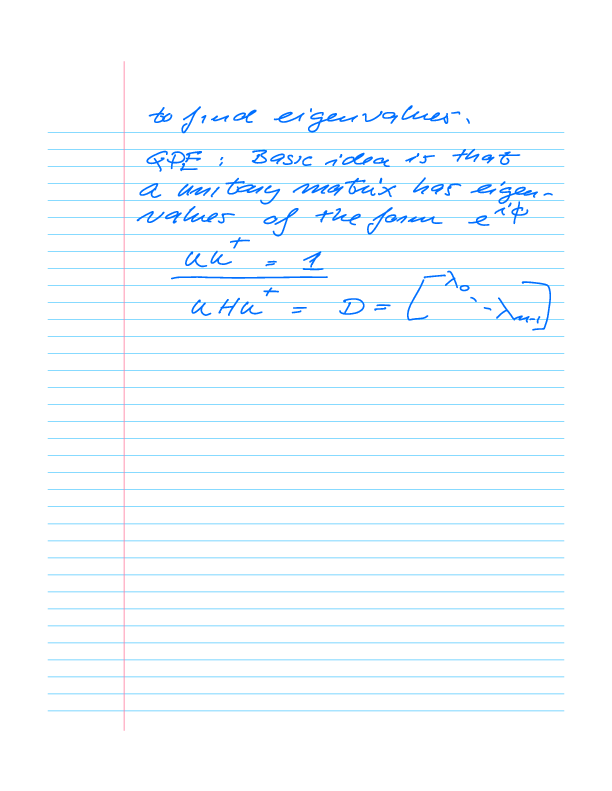 to find eigenvalues.
QPE : Basic idea is that
a unitary matrix has eigen-
values of the form e^{iϕ}
UU^† = 1
UHU^† = D = [λ_0 ⋱ λ_{n-1}]